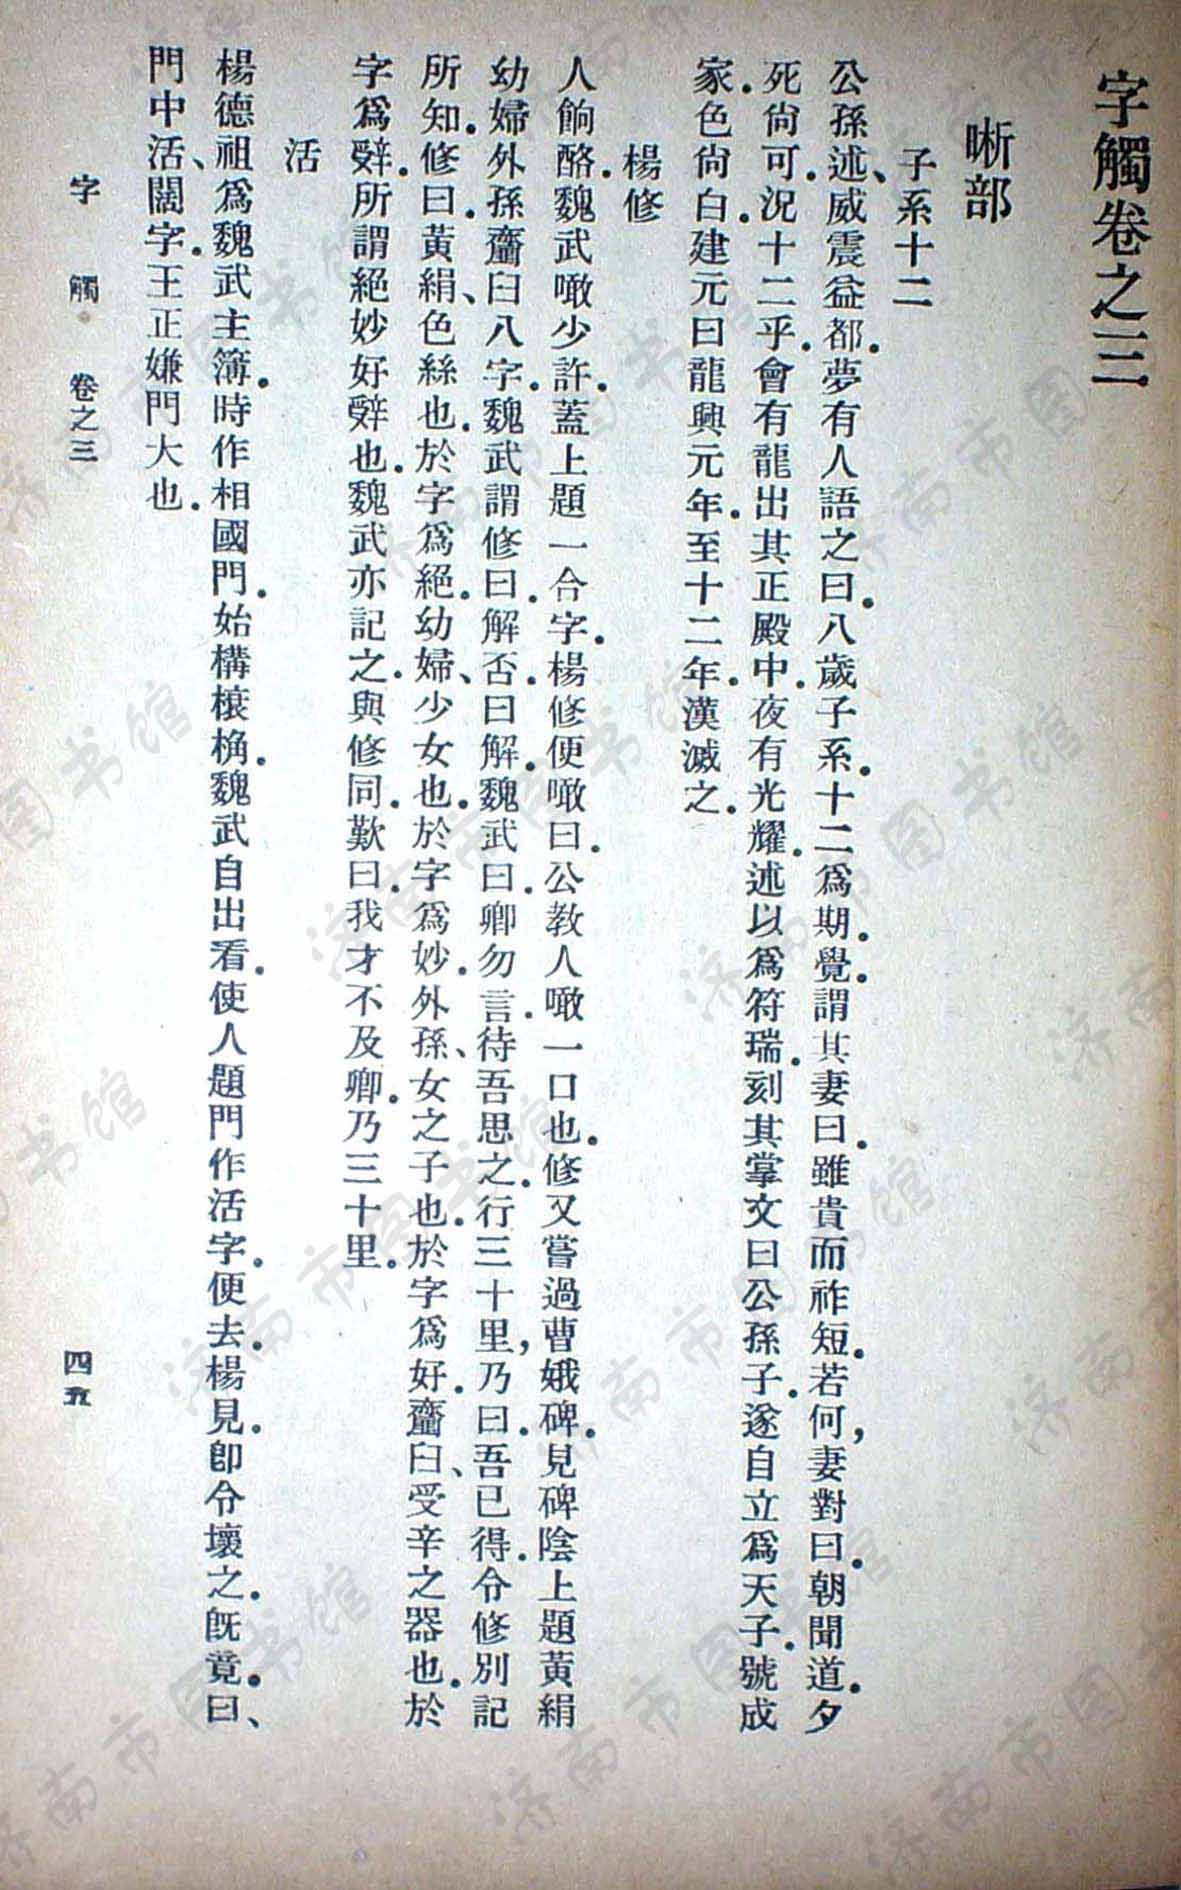 字觸卷之三
晰部
子系十二
公孫述、威震益都。夢有人語之曰。八歲子系。十二爲期。覺。謂其妻曰。雖貴而祚短。若何，妻對曰。朝聞道。夕
死尙可。況十二乎。會有龍出其正殿中。夜有光耀。述以爲符瑞。刻其掌文曰公孫子。遂自立爲天子。號成
家。色尙白。建元曰龍興元年。至十二年。漢滅之。
楊修
人餉酪。魏武噉少許。蓋上題一合字。楊修便噉曰。公教人噉一口也。修又嘗過曹娥碑。見碑陰上題黃絹
幼婦外孫齏臼八字。魏武謂修曰。解否。曰解。魏武曰。卿勿言。待吾思之。行三十里，乃曰。吾已得。令修別記
所知。修曰。黃絹、色絲也。於字爲絕。幼婦、少女也。於字爲妙。外孫、女之子也。於字爲好。齏臼、受辛之器也。於
字爲辤。所謂絕妙好辤也。魏武亦記之。與修同。歎曰。我才不及卿。乃三十里。
活
楊德祖爲魏武主簿。時作相國門。始構榱桷。魏武自出看。使人題門作活字。便去。楊見。卽令壞之。旣竟。曰、
門中活、闊字。王正嫌門大也。
字觸 卷之三
四五
济南市图书馆